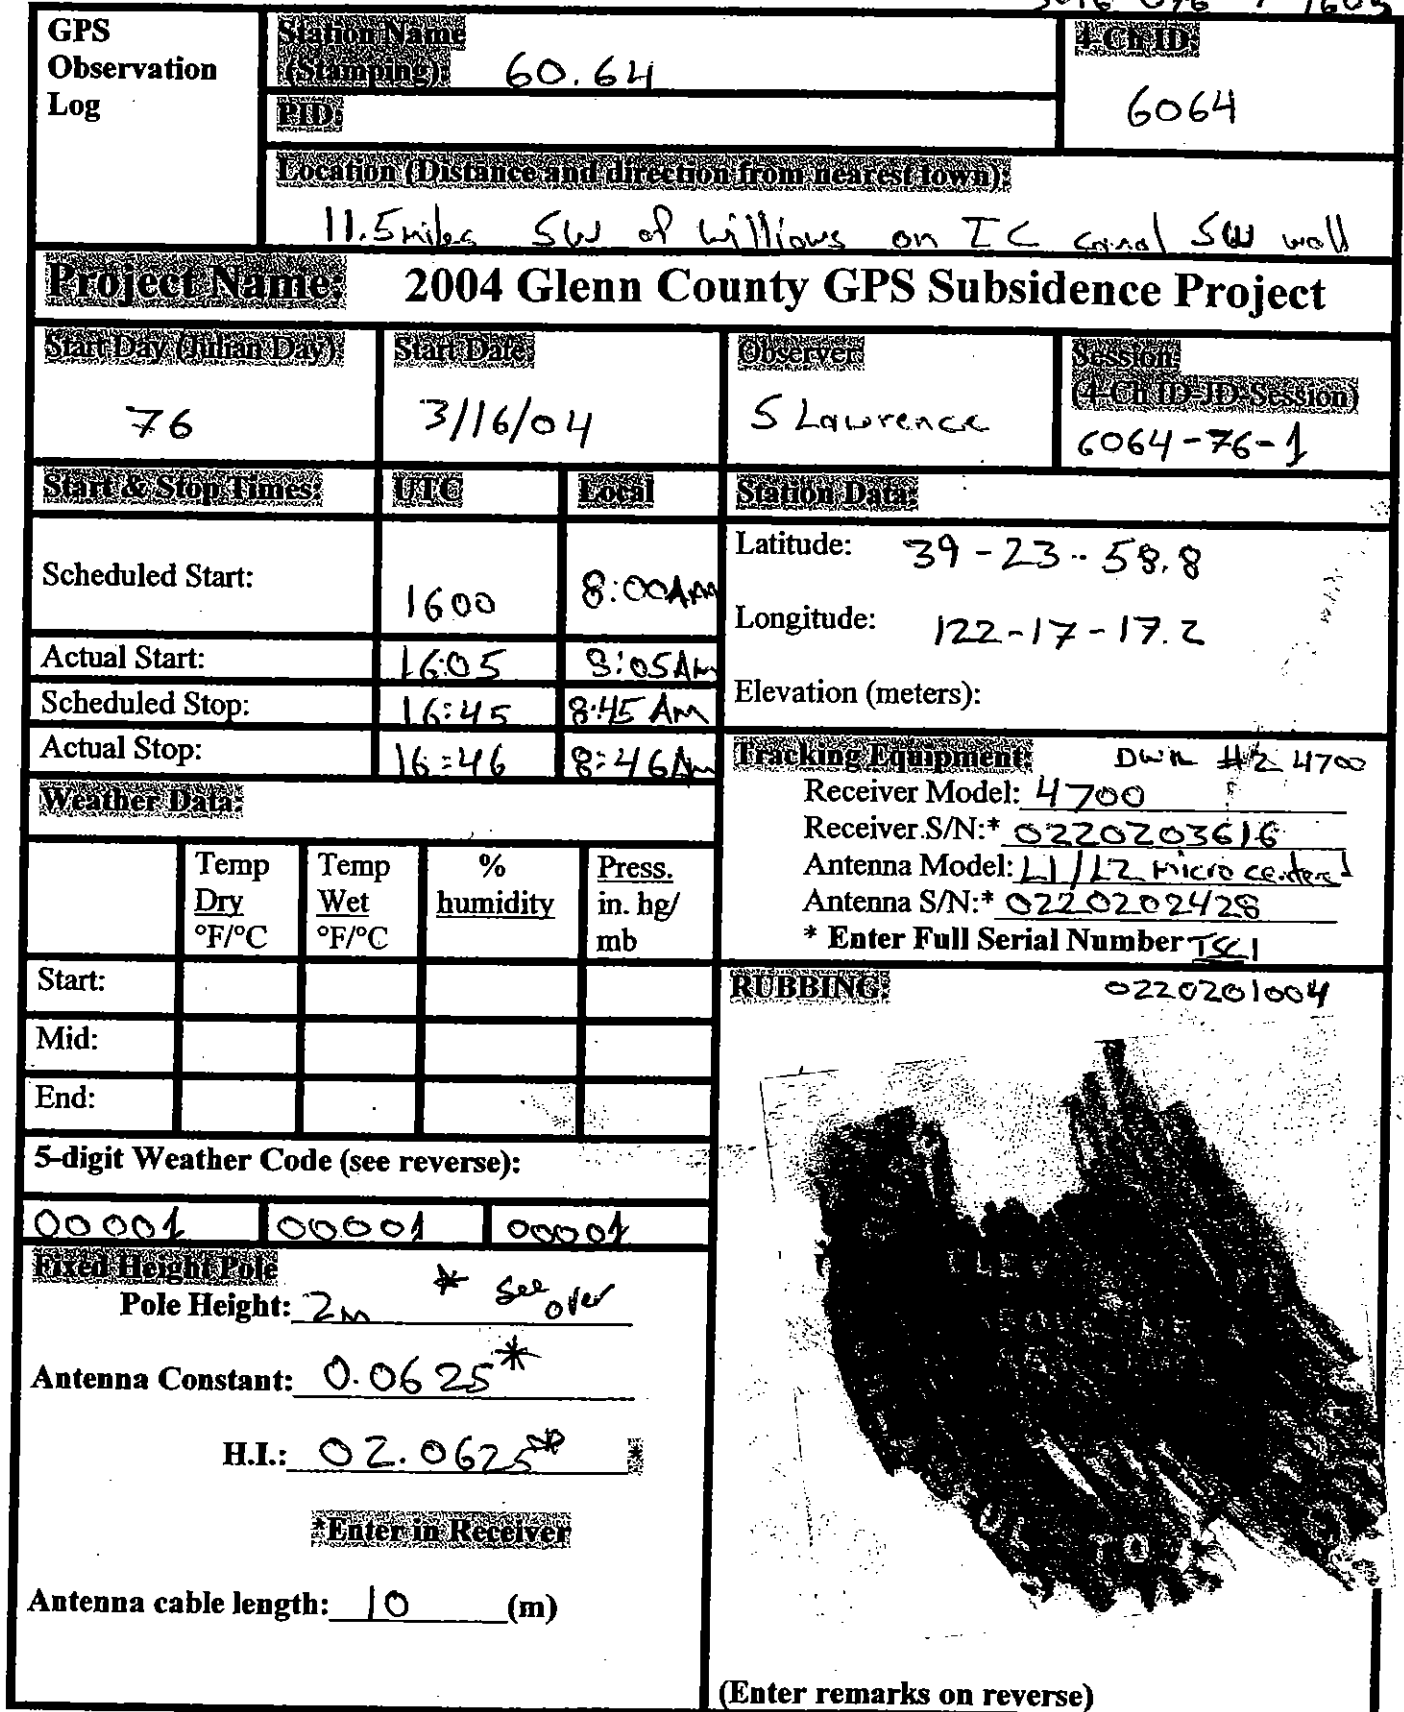 GPS
Observation
Log
Station Name
(Stamping): 60.64
PID:
4-Ch ID:
6064
Location (Distance and direction from nearest town):
11.5 miles SW of Willows on TC canal SW wall
Project Name: 2004 Glenn County GPS Subsidence Project
Start Day (Julian Day)
76
Start Date:
3/16/04
Observer
S Lawrence
Session:
(4-Ch ID-JD-Session)
6064-76-1
Start & Stop Times: UTC Local
Scheduled Start: 1600 8:00AM
Actual Start: 16:05 8:05AM
Scheduled Stop: 16:45 8:45 AM
Actual Stop: 16:46 8:46AM
Station Data:
Latitude: 39-23-58.8
Longitude: 122-17-17.2
Elevation (meters):
Tracking Equipment: DWR #2 4700
Receiver Model: 4700
Receiver S/N:* 0220203616
Antenna Model: L1/L2 Micro centered
Antenna S/N:* 0220202428
* Enter Full Serial Number TSC1
0220201004
Weather Data:
Temp Dry °F/°C
Temp Wet °F/°C
% humidity
Press. in. hg/ mb
Start:
Mid:
End:
5-digit Weather Code (see reverse):
00001 00001 00001
Fixed Height Pole
Pole Height: 2m * see over
Antenna Constant: 0.0625*
H.I.: 02.0625* *
*Enter in Receiver
Antenna cable length: 10 (m)
RUBBING:
(Enter remarks on reverse)